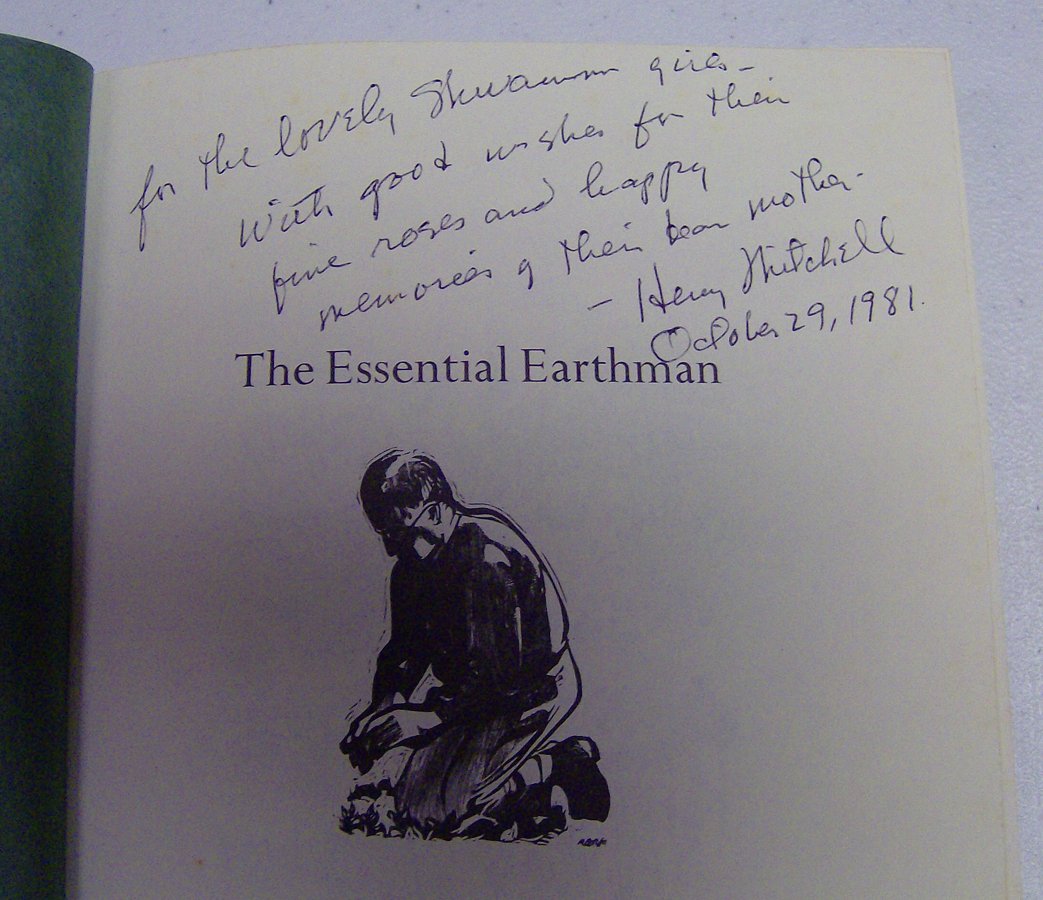 for the lovely girls –
With good wishes for their
fine roses and happy
memories of their dear mother –
– Henry Mitchell
October 29, 1981.
The Essential Earthman